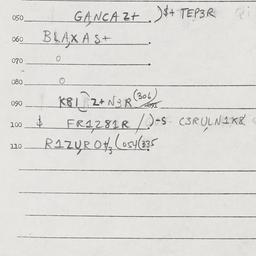 050 GANCA Z+ )$+ TEP3R
060 BLAXAS+
070 0
080 0
090 K81 Z+N3R (306)
100 $ FR1Z81R /)-S C3RULN1K8
110 R1ZUR0